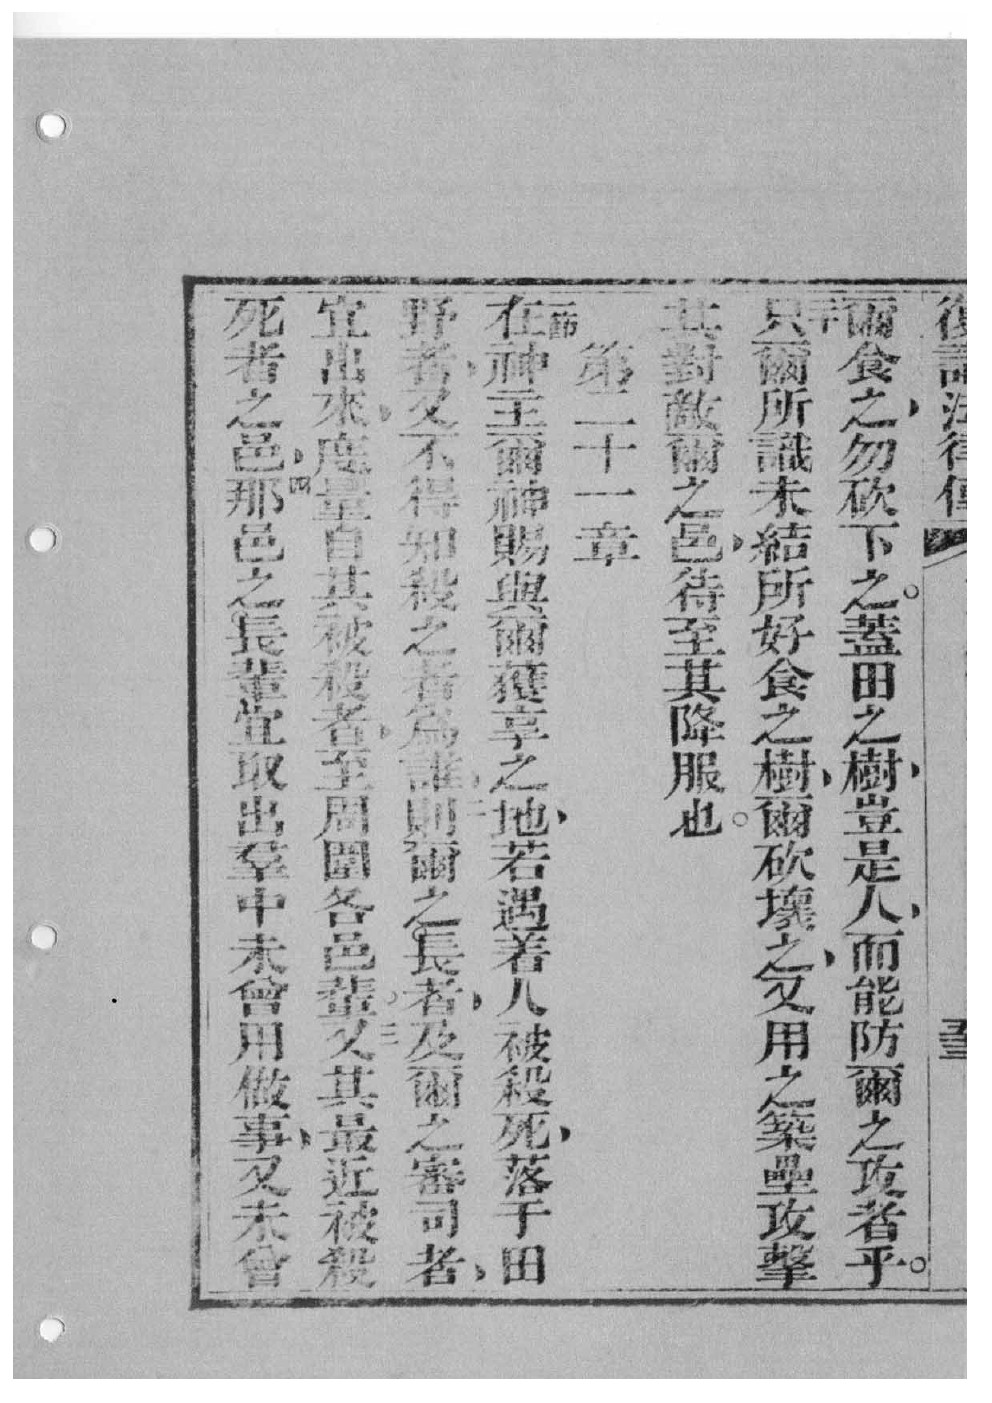 復講法律傳
爾食之、勿砍下之。蓋田之樹、豈是人、而能防爾之攻者乎。
二十只爾所識未結所好食之樹、爾砍壞之、又用之築壘攻擊
其對敵爾之邑、待至其降服也。
第二十一章
一節在神主爾神賜與爾獲享之地、若遇着人被殺死、落于田
野者、又不得知殺之者爲誰、二則爾之長者、及爾之審司者、
宜出來、度量自其被殺者、至周圍各邑輩。三又其最近被殺
死者之邑、四那邑之長輩宜取出羣中未曾用做事、又未曾